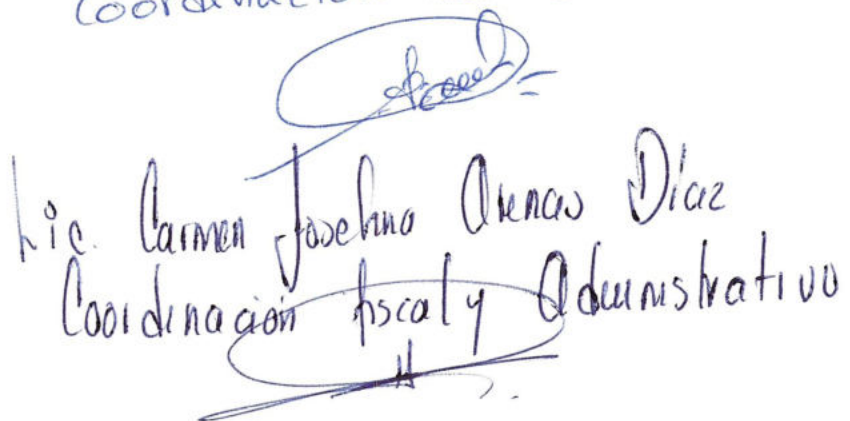 Lic. Carmen Josefina Arenas Díaz
Coordinación fiscal y Administrativo